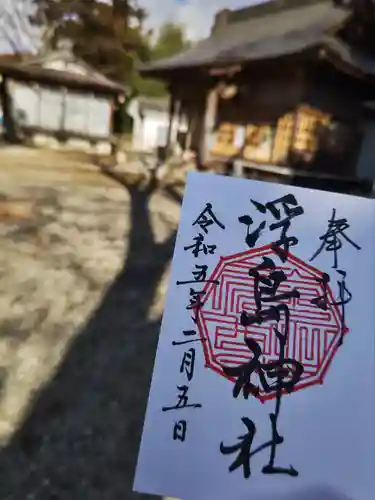 奉拝
浮島神社
令和五年二月五日